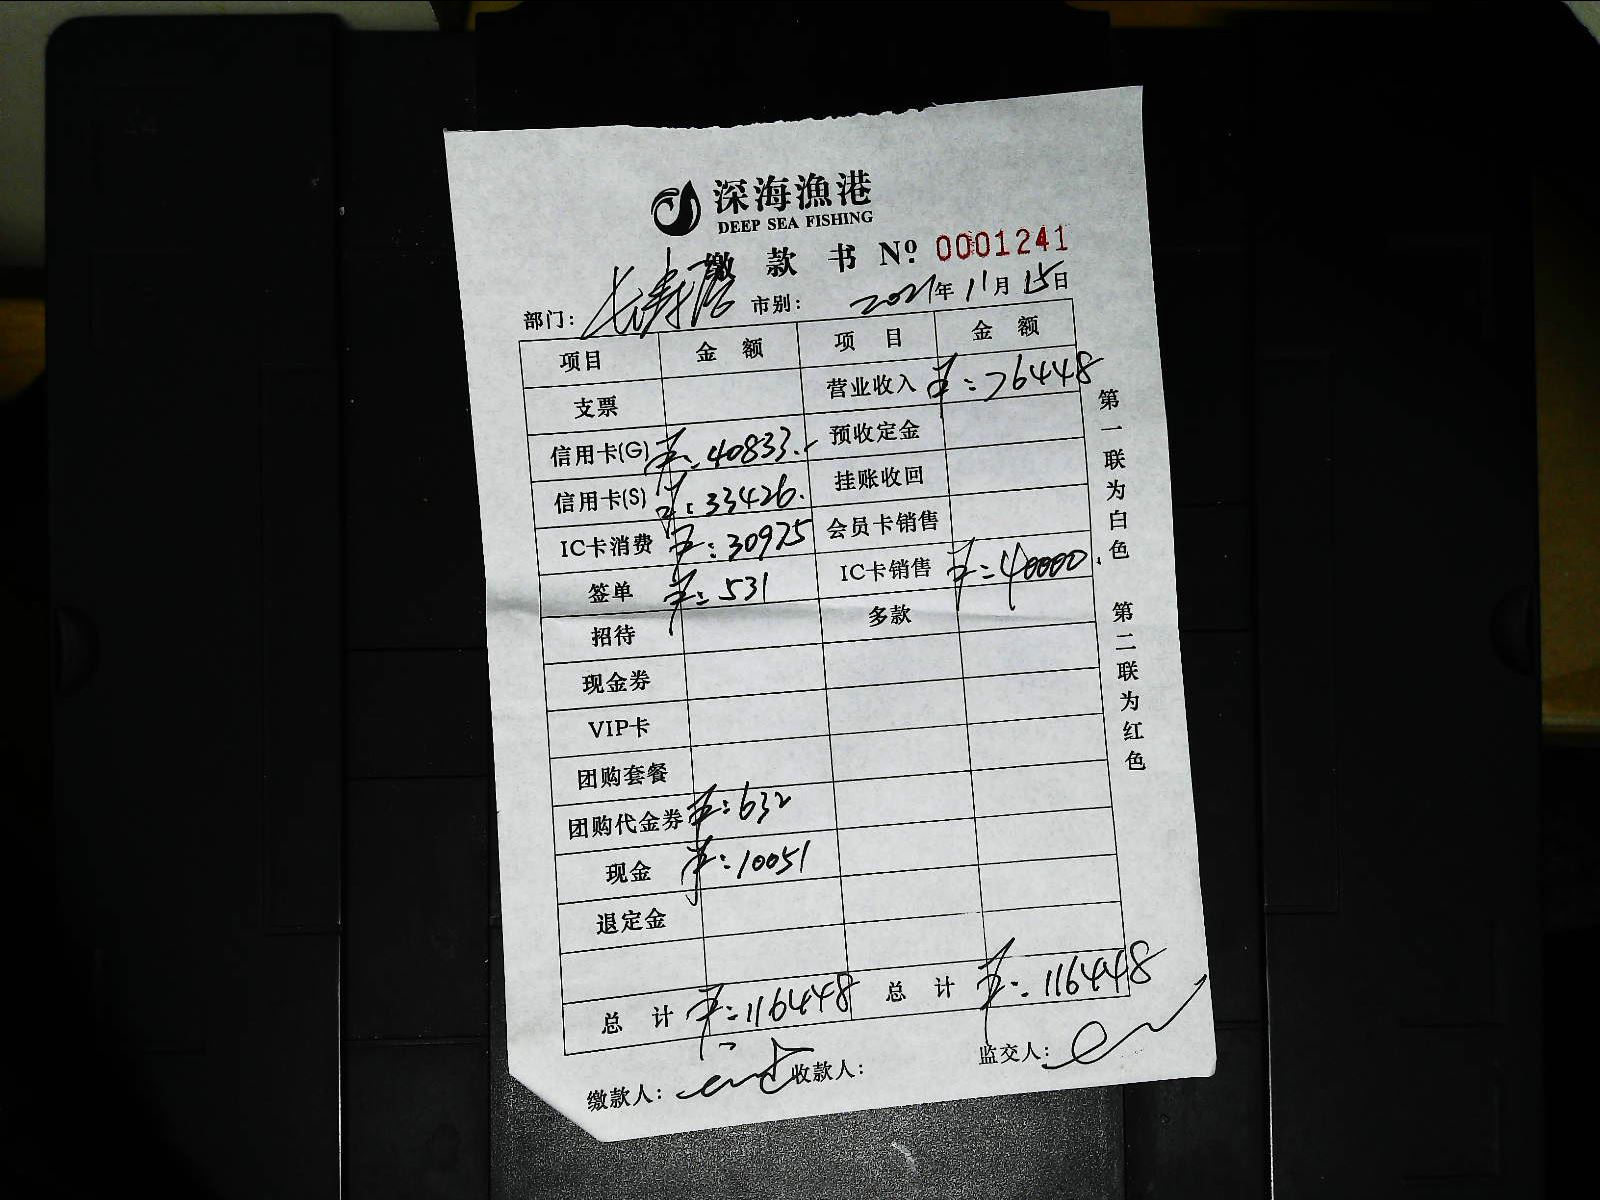 深海漁港
DEEP SEA FISHING
缴款书 Nº: 0001241
部门: 长寿路 市别: 2021年11月15日
项目 金额 项目 金额
支票 营业收入 ¥:76448
信用卡(G) ¥:40833.- 预收定金
信用卡(S) ¥:33426. 挂账收回
IC卡消费 ¥:30975 会员卡销售
签单 ¥:531 IC卡销售 ¥:40000.
招待 多款
现金券
VIP卡
团购套餐
团购代金券 ¥:632
现金 ¥:10051
退定金
总计 ¥:116448 总计 ¥:116448
缴款人: 收款人: 监交人:
第一联为白色 第二联为红色